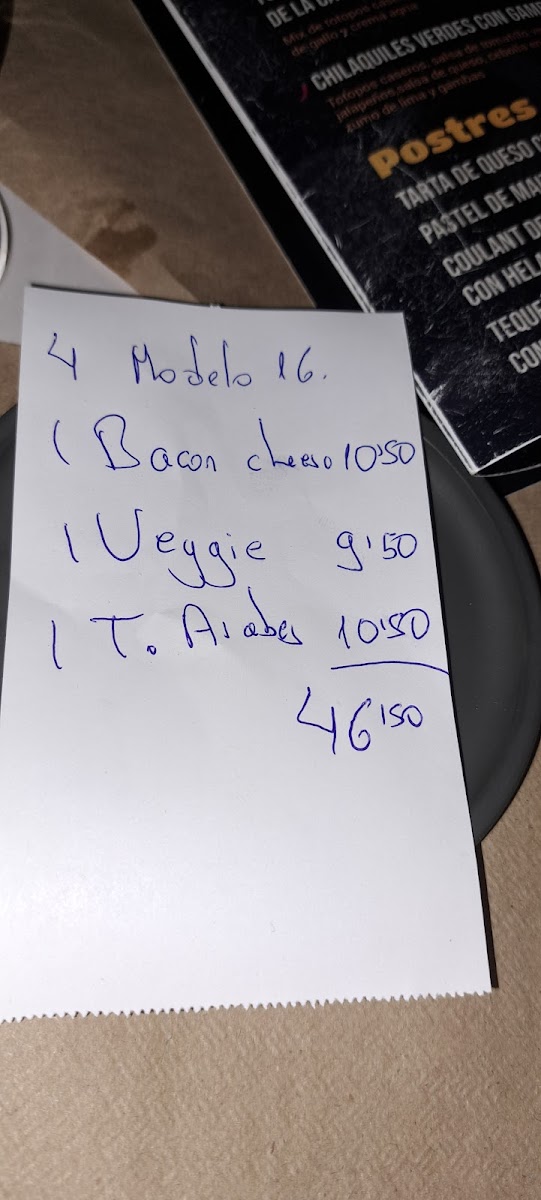 DE LA
Mix de totopos
de gallo y crema agria
CHILAQUILES VERDES CON
Totopos caseros, salsa de tomatillo,
jalapeños, salsa de queso, cebolla
zumo de lima y gambas
Postres
TARTA DE QUESO
PASTEL DE
COULANT
CON
4 Modelo 16.
1 Bacon cheese 10'50
1 Veggie 9'50
1 T. Arabes 10'50
46'50